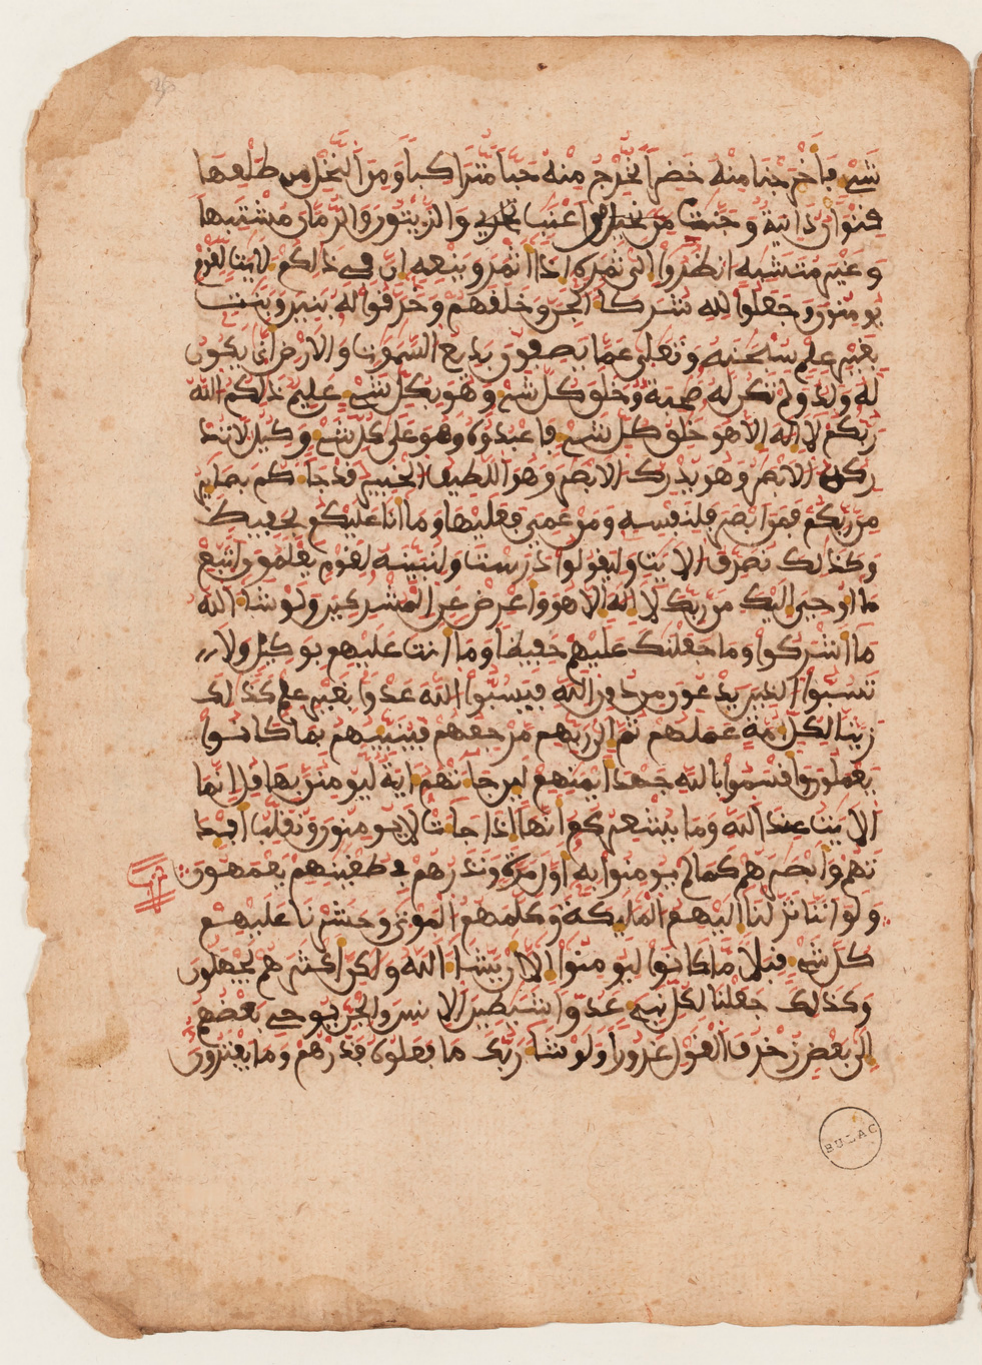 شےء فاخرجنا منه خضرا نخرج منه حبا متراكبا ومن النخل من طلعها
فنوان دانية وجنت من اعنب والزيتون والرمان مشتبها
وغير متشبه انظروا الى ثمره اذا اثمر وينعه ان في ذلكم لايت لقوم
يومنون وجعلوا لله شركاء الجن وخلقهم وخرقوا له بنين وبنت
بغير علم سبحنه وتعلى عما يصفون بديع السموت والارض انى يكون
له ولد ولم تكن له صحبة وخلق كل شےء وهو بكل شےء عليم ذلكم الله
ربكم لا اله الا هو خلق كل شےء فاعبدوه وهو على كل شےء وكيل لا تد
ركه الابصر وهو يدرك الابصر وهو اللطيف الخبير قد جاءكم بصاير
من ربكم فمن ابصر فلنفسه ومن عمي فعليها وما انا عليكم بحفيظ
وكذلك نصرف الايت وليقولوا درست ولنبينه لقوم يعلمون اتبع
ما اوحي اليك من ربك لا اله الا هو واعرض عن المشركين ولو شاء الله
ما اشركوا وما جعلنك عليهم حفيظا وما انت عليهم بوكيل ولا
تسبوا الذين يدعون من دون الله فيسبوا الله عدوا بغير علم كذلك
زينا لكل امة عملهم ثم الى ربهم مرجعهم فينبيهم بما كانوا
يعملون واقسموا بالله جهد ايمنهم لين جاءتهم اية ليومنن بها قل انما
الايت عند الله وما يشعركم انها اذا جاءت لا يومنون ونقلب افيد
تهم وابصرهم كما لم يومنوا به اول مرة ونذرهم في طغينهم يعمهون
حزب
ولو اننا نزلنا اليهم المليكة وكلمهم الموتى وحشرنا عليهم
كل شےء قبلا ما كانوا ليومنوا الا ان يشاء الله ولكن اكثرهم يجهلون
وكذلك جعلنا لكل نبےء عدوا شيطين الانس والجن يوحي بعضهم
الى بعض زخرف القول غرورا ولو شاء ربك ما فعلوه فذرهم وما يفترون
BULAC